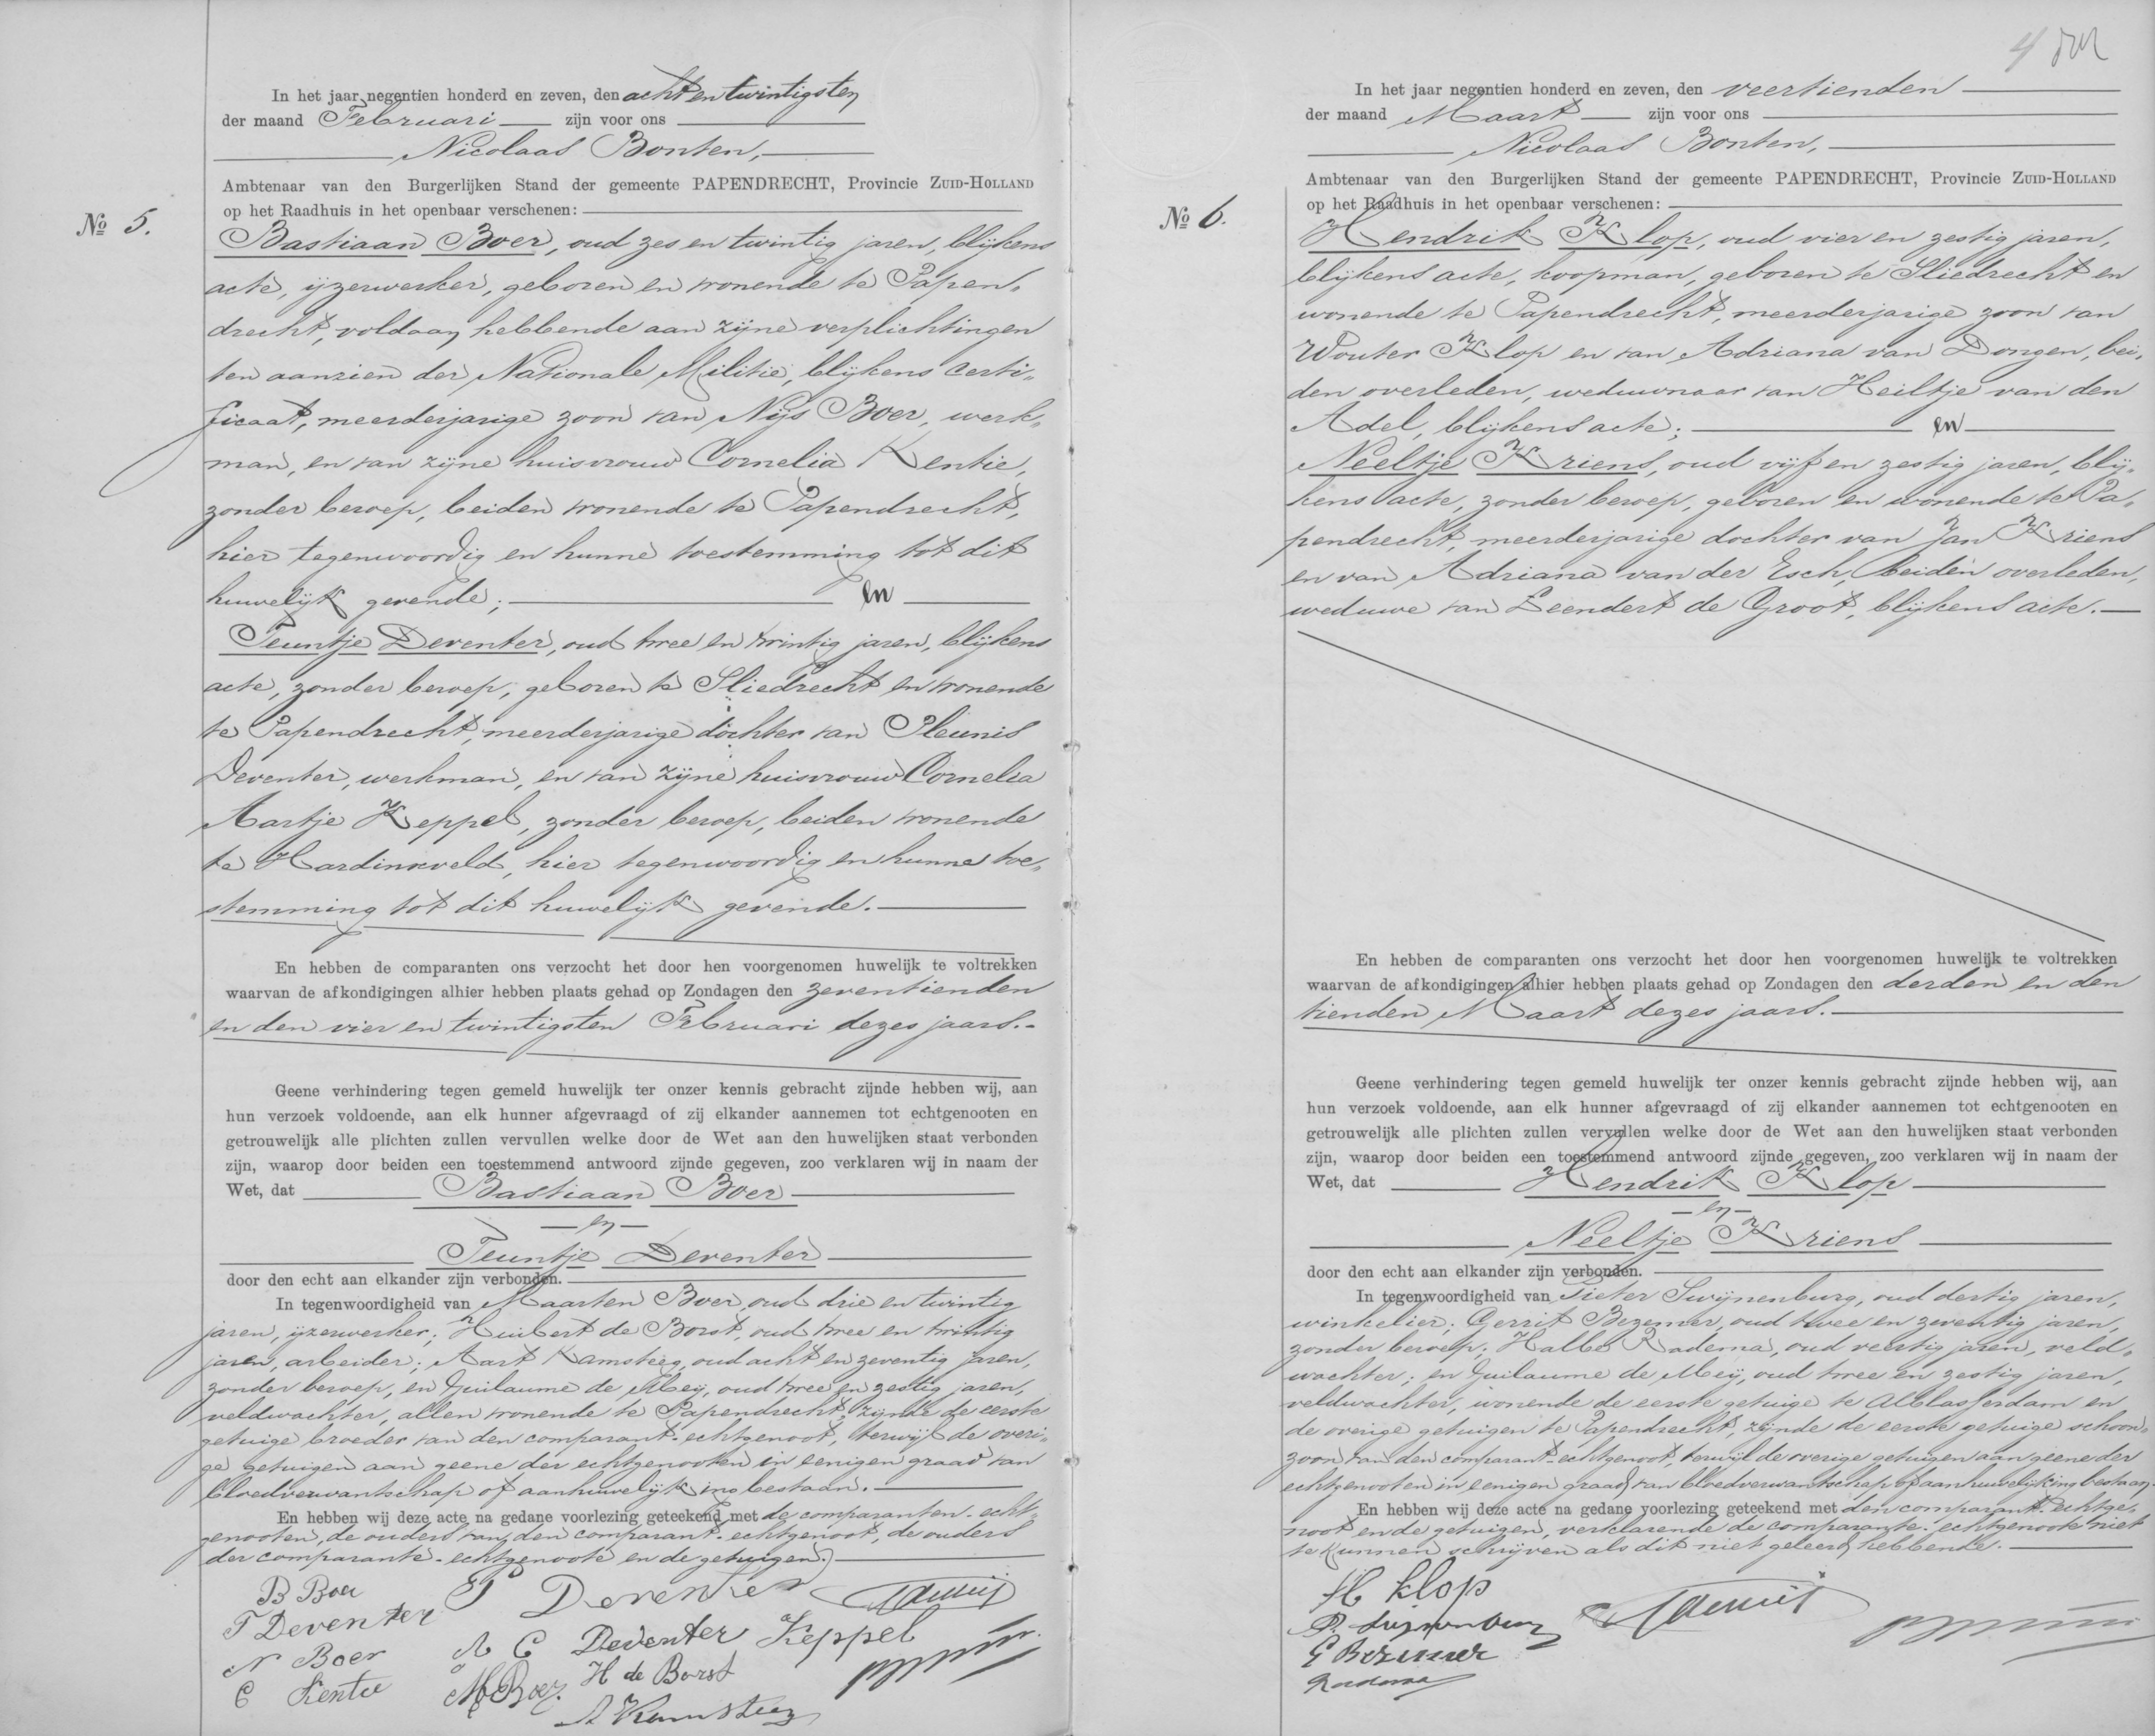 In het jaar negentien honderd en zeven, den acht en twintigsten
der maand Februari zijn voor ons
Nicolaas Bonten,
Ambtenaar van den Burgerlijken Stand der gemeente PAPENDRECHT, Provincie ZUID-HOLLAND
op het Raadhuis in het openbaar verschenen:
No 5.
Bastiaan Boer, oud zes en twintig jaren, blijkens
acte, ijzerwerker, geboren en wonende te Papen„
drecht, voldaan hebbende aan zijne verplichtingen
ten aanzien der Nationale Militie, blijkens certi„
ficaat, meerderjarige zoon van Nijs Boer, werk„
man, en van zijne huisvrouw Cornelia Kentie,
zonder beroep, beiden wonende te Papendrecht,
hier tegenwoordig en hunne toestemming tot dit
huwelijk gevende; en
Teuntje Deventer, oud twee en twintig jaren, blijkens
acte, zonder beroep, geboren te Sliedrecht en wonende
te Papendrecht, meerderjarige dochter van Pleunis
Deventer, werkman, en van zijne huisvrouw Cornelia
Aartje Keppel, zonder beroep, beiden wonende
te Hardinxveld, hier tegenwoordig en hunne toe„
stemming tot dit huwelijk gevende.
En hebben de comparanten ons verzocht het door hen voorgenomen huwelijk te voltrekken
waarvan de afkondigingen alhier hebben plaats gehad op Zondagen den zeventienden
en den vier en twintigsten Februari dezes jaars.
Geene verhindering tegen gemeld huwelijk ter onzer kennis gebracht zijnde hebben wij, aan
hun verzoek voldoende, aan elk hunner afgevraagd of zij elkander aannemen tot echtgenooten en
getrouwelijk alle plichten zullen vervullen welke door de Wet aan den huwelijken staat verbonden
zijn, waarop door beiden een toestemmend antwoord zijnde gegeven, zoo verklaren wij in naam der
Wet, dat Bastiaan Boer
en
Teuntje Deventer
door den echt aan elkander zijn verbonden.
In tegenwoordigheid van Maarten Boer, oud drie en twintig
jaren, ijzerwerker; Huibert de Borst, oud twee en twintig
jaren, arbeider; Aart Kamsteeg, oud acht en zeventig jaren,
zonder beroep, en Guilaume de Meij, oud twee en zestig jaren,
veldwachter, allen wonende te Papendrecht, zijnde de eerste
getuige broeder van den comparant-echtgenoot, terwijl de overi„
ge getuigen aan geene der echtgenooten in eenigen graad van
bloedverwantschap of aanhuwelijking bestaan.
En hebben wij deze acte na gedane voorlezing geteekend met de comparanten-echt„
genooten, de ouders van den comparant-echtgenoot, de ouders
der comparante-echtgenoote en de getuigen.
B Boer
P Deventer
T Deventer
A C Deventer Keppel
N Boer
C Kentie
M Boer.
H de Borst
A Kamsteeg
4
In het jaar negentien honderd en zeven, den veertienden
der maand Maart zijn voor ons
Nicolaas Bonten,
Ambtenaar van den Burgerlijken Stand der gemeente PAPENDRECHT, Provincie ZUID-HOLLAND
op het Raadhuis in het openbaar verschenen:
No 6.
Hendrik Klop, oud vier en zestig jaren,
blijkens acte, koopman, geboren te Sliedrecht en
wonende te Papendrecht, meerderjarige zoon van
Wouter Klop en van Adriana van Dongen, bei„
den overleden, weduwnaar van Heiltje van den
Adel, blijkens acte; en
Neeltje Kriens, oud vijf en zestig jaren, blij„
kens acte, zonder beroep, geboren en wonende te Pa„
pendrecht, meerderjarige dochter van Jan Kriens
en van Adriana van der Esch, beiden overleden,
weduwe van Leendert de Groot, blijkens acte.
En hebben de comparanten ons verzocht het door hen voorgenomen huwelijk te voltrekken
waarvan de afkondigingen alhier hebben plaats gehad op Zondagen den derden en den
tienden Maart dezes jaars.
Geene verhindering tegen gemeld huwelijk ter onzer kennis gebracht zijnde hebben wij, aan
hun verzoek voldoende, aan elk hunner afgevraagd of zij elkander aannemen tot echtgenooten en
getrouwelijk alle plichten zullen vervullen welke door de Wet aan den huwelijken staat verbonden
zijn, waarop door beiden een toestemmend antwoord zijnde gegeven, zoo verklaren wij in naam der
Wet, dat Hendrik Klop
en
Neeltje Kriens
door den echt aan elkander zijn verbonden.
In tegenwoordigheid van Pieter Swijnenburg, oud dertig jaren,
winkelier; Gerrit Bezemer, oud twee en zeventig jaren,
zonder beroep; Halbe Radema, oud veertig jaren, veld„
wachter; en Guilaume de Meij, oud twee en zestig jaren,
veldwachter, wonende de eerste getuige te Alblasserdam en
de overige getuigen te Papendrecht, zijnde de eerste getuige schoon„
zoon van den comparant-echtgenoot, terwijl de overige getuigen aan geene der
echtgenooten in eenigen graad van bloedverwantschap of aanhuwelijking bestaan.
En hebben wij deze acte na gedane voorlezing geteekend met den comparant-echtge„
noot en de getuigen, verklarende de comparante-echtgenoote niet
te kunnen schrijven als dit niet geleerd hebbende.
H Klop
P. Swijnenburg
G Bezemer
Radema